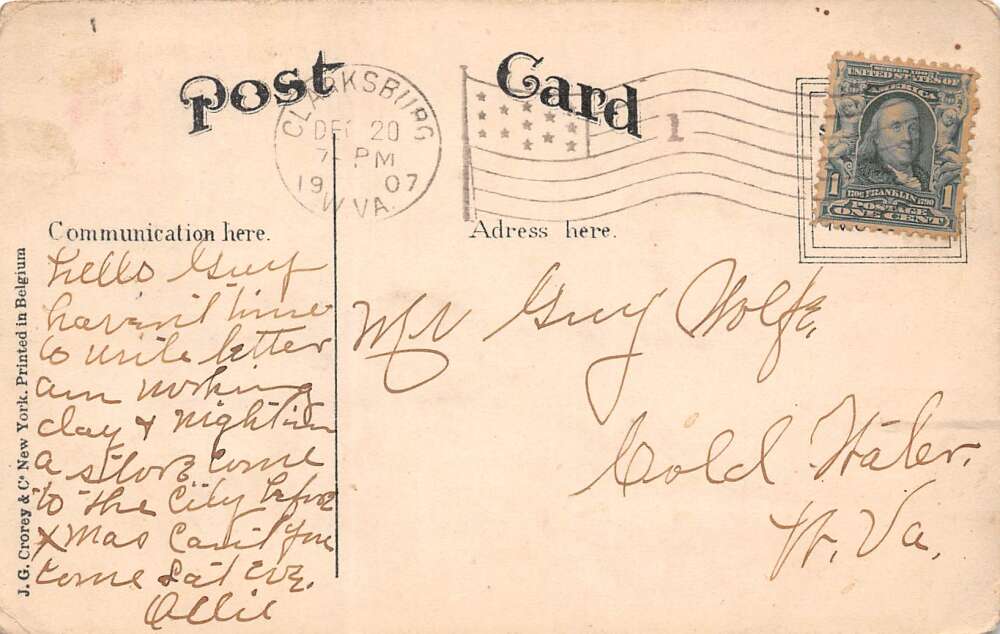 Post Card
CLARKSBURG
DEC 20
7- PM
1907
W VA.
1
SERIES 1902
UNITED STATES OF
AMERICA
1 1706 FRANKLIN 1790 1
POSTAGE
ONE CENT
Communication here.
Adress here.
hello Guy
haven't time
to write letter
am working
day & night in
a store come
to the City before
Xmas Can't you
come Sat eve.
Ollie
Mr Guy Wolfe,
Cold Water,
W. Va.
J. G. Crorey & Co New York. Printed in Belgium